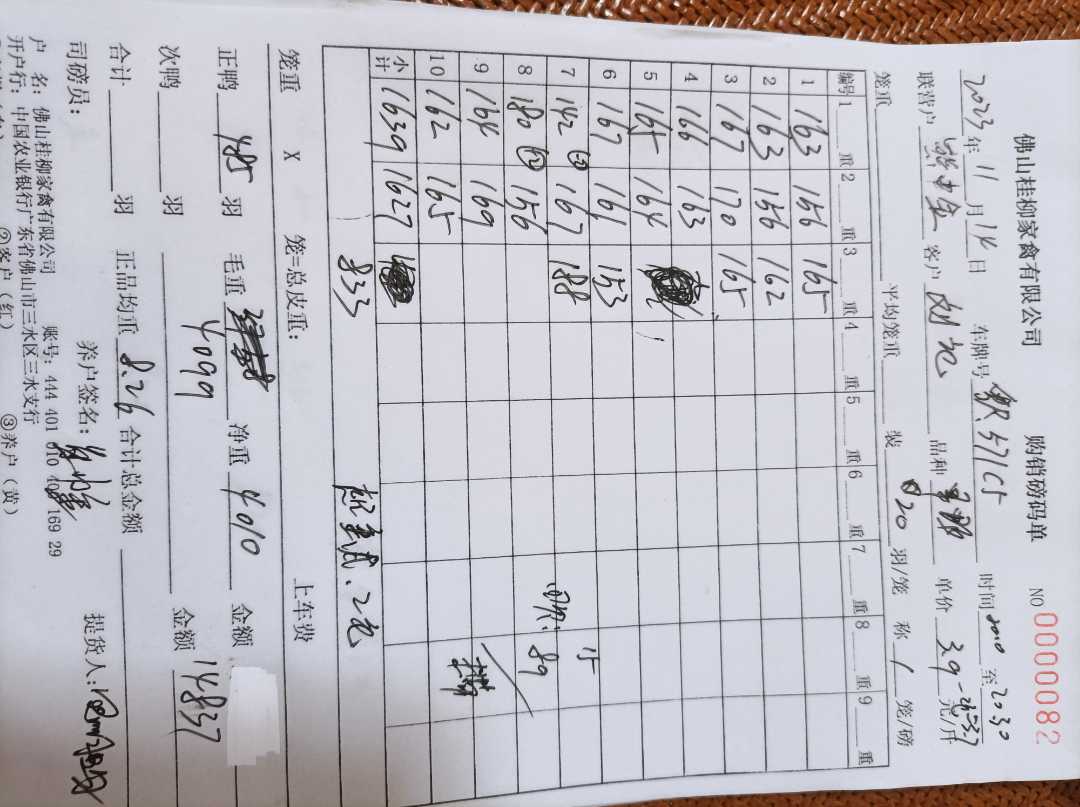 佛山桂柳家禽有限公司 购销磅码单 NO 0000082
2023年11月14日 车牌号 571C5 时间2010至2030
联营户 客户 品种 单价3.9-2=3.7元/斤
笼重 平均笼重 装20羽/笼 称1笼/磅
编号 1重 2重 3重 4重 5重 6重 7重 8重 9重
1 163 156 165
2 163 156 162
3 167 170 165
4 166 163
5 165 164
6 167 161 153
7 142 167 188
8 180 156 15
9 164 169 89
10 162 165
小计 1639 1627
833
笼重 X 笼=总皮重: 上车费
正鸭485羽 毛重 净重4010 金额
4099
次鸭 羽 金额14837
合计 羽 正品均重8.26 合计总金额
司磅员: 养户签名: 提货人:
户 名: 佛山桂柳家禽有限公司 账号: 444 401 010 40 169 29
开户行: 中国农业银行广东省佛山市三水区三水支行
②客户(红) ③养户(黄)